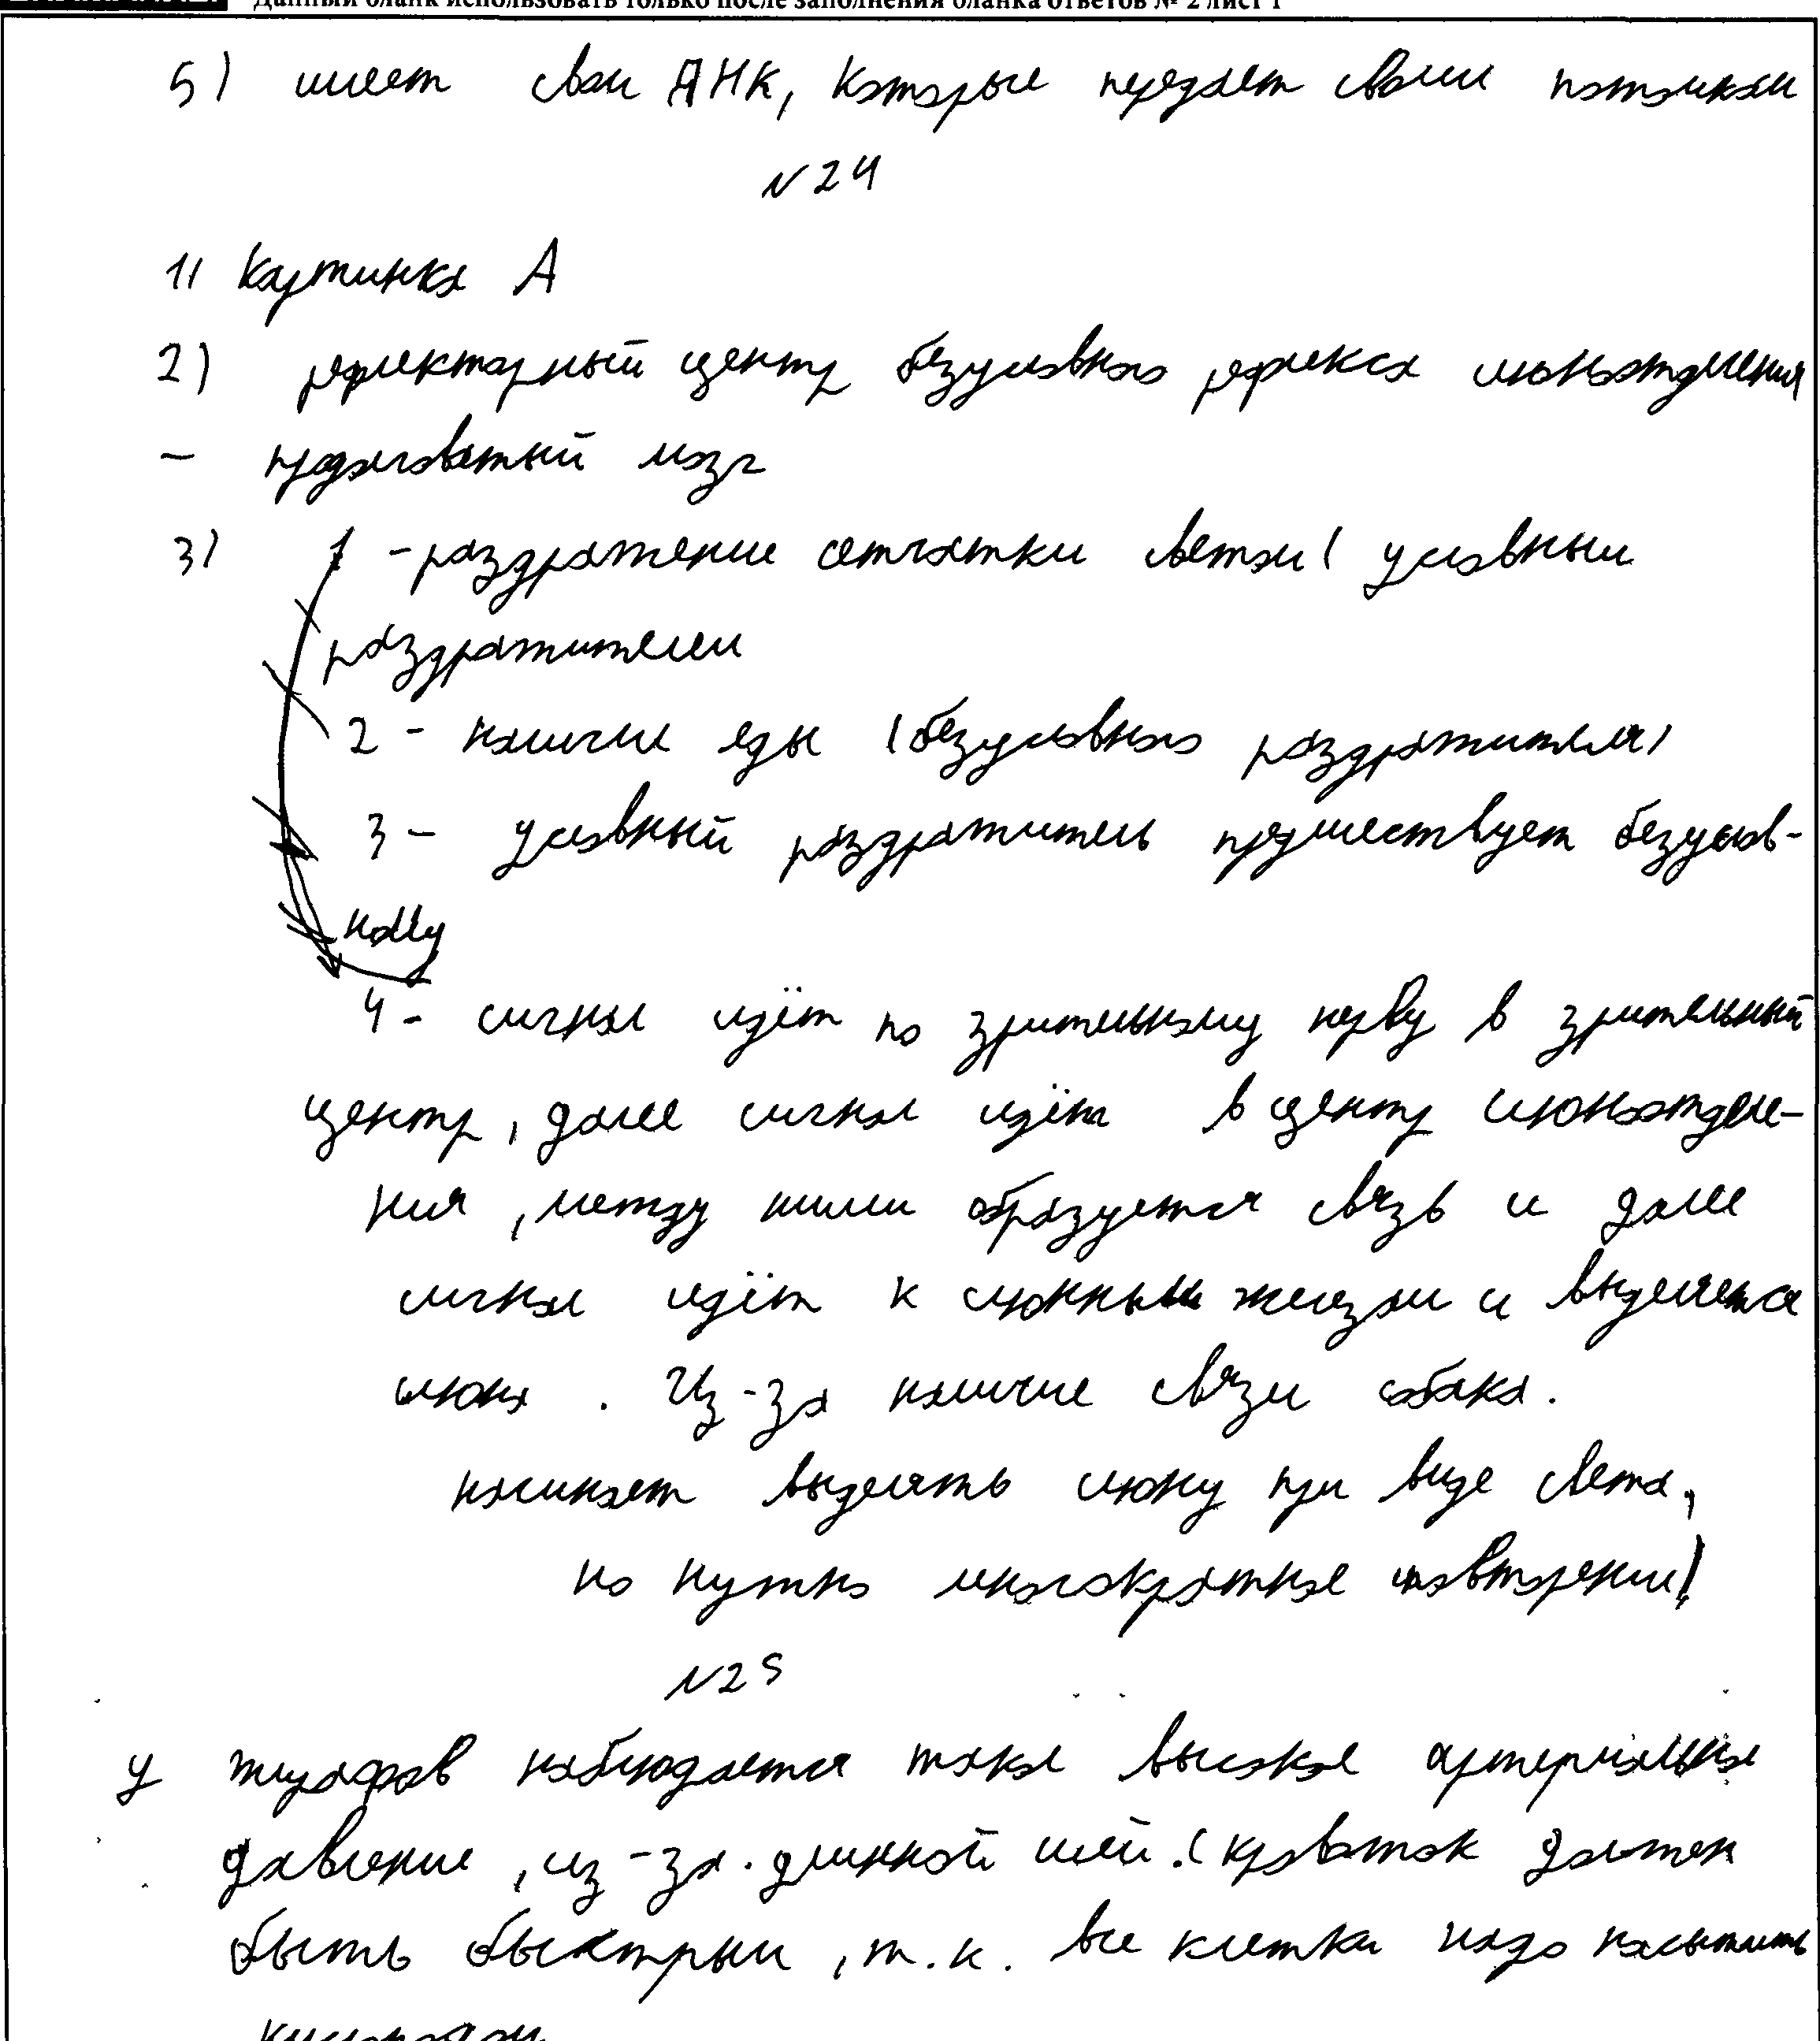 Данный бланк использовать только после заполнения бланка ответов № 2 лист 1
5) имеет свои ДНК, которые передает своим потомкам
№24
1) Картинка А
2) рефлекторный центр безусловного рефлекса слюноотделения
– продолговатый мозг
3) 1 - раздражение сетчатки светом ( условным
раздражителем
2 - наличие еды (безусловного раздражителя)
3 - условный раздражитель предшествует безуслов-
ному
4 - сигнал идёт по зрительному нерву в зрительный
центр, далее сигнал идёт в центр слюноотделе-
ния, между ними образуется связь и далее
сигнал идёт к слюнным железам и выделяется
слюна. Из-за наличие связи собака.
начинает выделять слюну при виде света,
но нужно многократное повторение!
№25
У жирафов наблюдается такое высокое артериальное
давление, из-за. длинной шеи. (кровоток должен
быть быстрым, т.к. все клетки надо насытить
кислородом